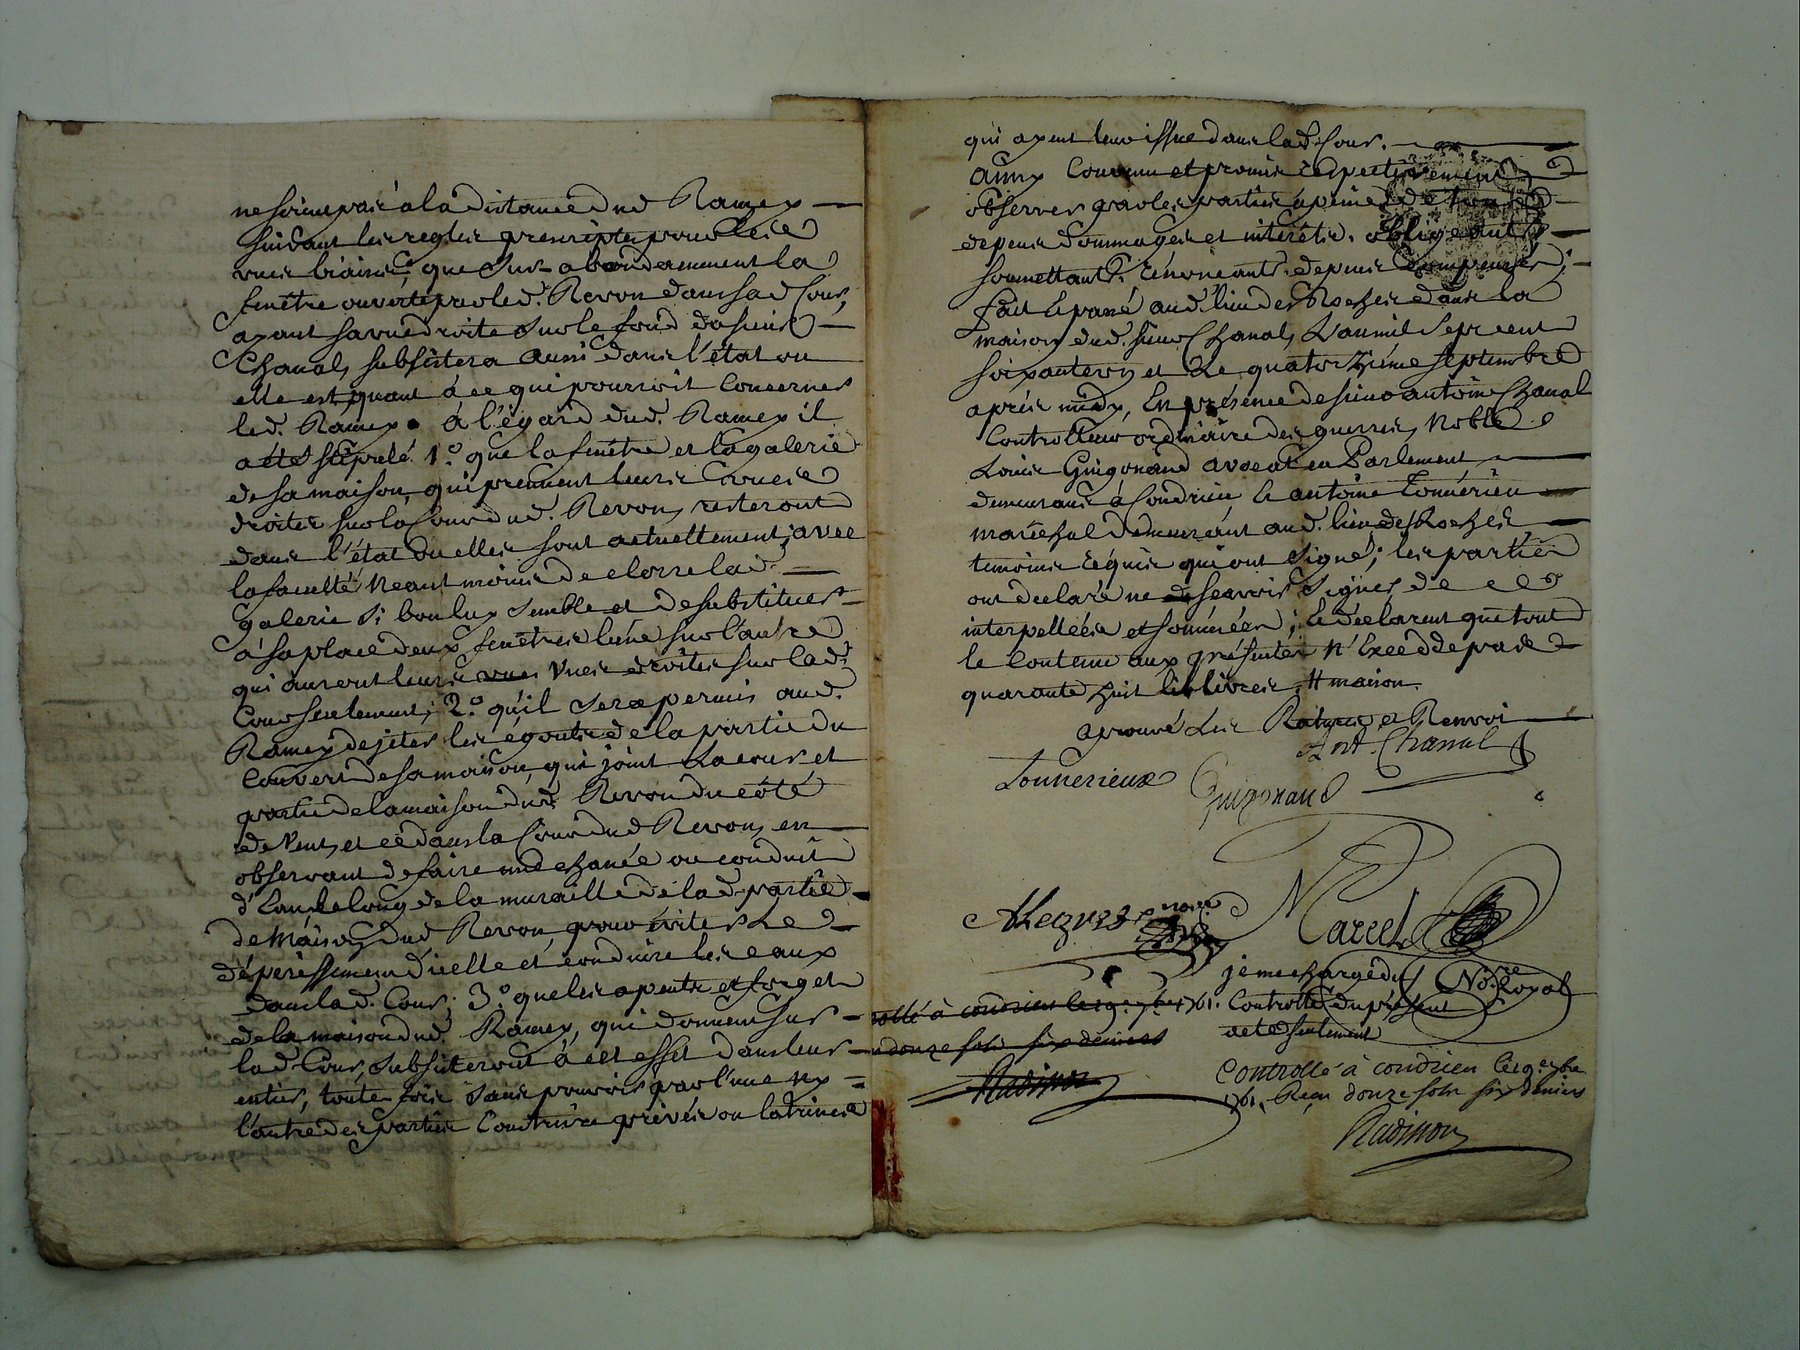 ne soient pas à la distance dud Ramey
suivant les regles prescriptes pour les
vues biaises, que surabondamment la
fenêtre ouverte par led. Revon dans sad Cour,
ayant sa vue droite sur le fond du sieur
Chanal, subsistera aussi dans l'état ou
elle est, quant à ce qui pourroit concerner
led. Ramey. à l'égard dud. Ramey il
a été stipulé 1.º que la fenêtre et la galerie
de sa maison, qui prennent leurs vues
droites sur la Cour dud. Revon, resteront
dans l'état ou elles sont actuellement, avec
la faculté neantmoins de clorre lad.
galerie si bon luy semble et de substituer
à sa place deux fenêtres l'une sur l'autre
qui auront leurs vues droites sur lad.
Cour seulement; 2.º qu'il sera permis aud.
Ramey de jeter les égouts de la partie du
Couvert de sa maison, qui joint la cour et
partie de la maison dud Revon du côté
de Vent, et ce dans la Cour dud Revon, en
observant de faire une chanée ou conduit
d'eau le long de la muraille de lad partie
de Maison dud Revon pour éviter le
déperissement d'icelle et conduire les eaux
dans lad. Cour; 3.º que les apents et forget
de la maison dud. Ramey, qui donnent sur
lad Cour, subsisteront à cet effet dans leur
entier, toutes fois sans pouvoir par l'une ny
l'autre des parties Construire privés ou latrines
qui ayent leur issue dans lad. Cour.
Ainsy Convenu et promis respectivement
observer par les parties à peine de tous
depens dommages et intérêts. obligeant
soumettants, rénonceants. depuis
fait et passé aud. lieu des Roches dans la
maison dud. sieur Chanal, L'an mil sept cent
soixante un et le quatorzième septembre
après midy, En présence de sieur antoine Chanal
Controlleur ordinaire des guerres, Noble
Louis Guigonand avocat en Parlement
demeurant à Condrieu et antoine Tonnérieu
maréchal demeurant aud. lieu des Roches
temoins réquis qui ont signé; les parties
ont declaré ne sçavoir signer de ce
interpellées et sommées; et declarent que tout
le Contenu aux présentes N'Excedde pas
quarante huit livres. # maison.
aprouvé Les Ratures et Renvoi
Ant. Chanal
Tonnerieux Guigonand
Marcel
je me chargé du Nre. Royal
à condrieu le 19e. 7bre 1761. Controlle du présent
acte seulement
douze sols six deniers
Controllé à condrieu le 19e 7bre
1761. Reçu douze sols six deniers